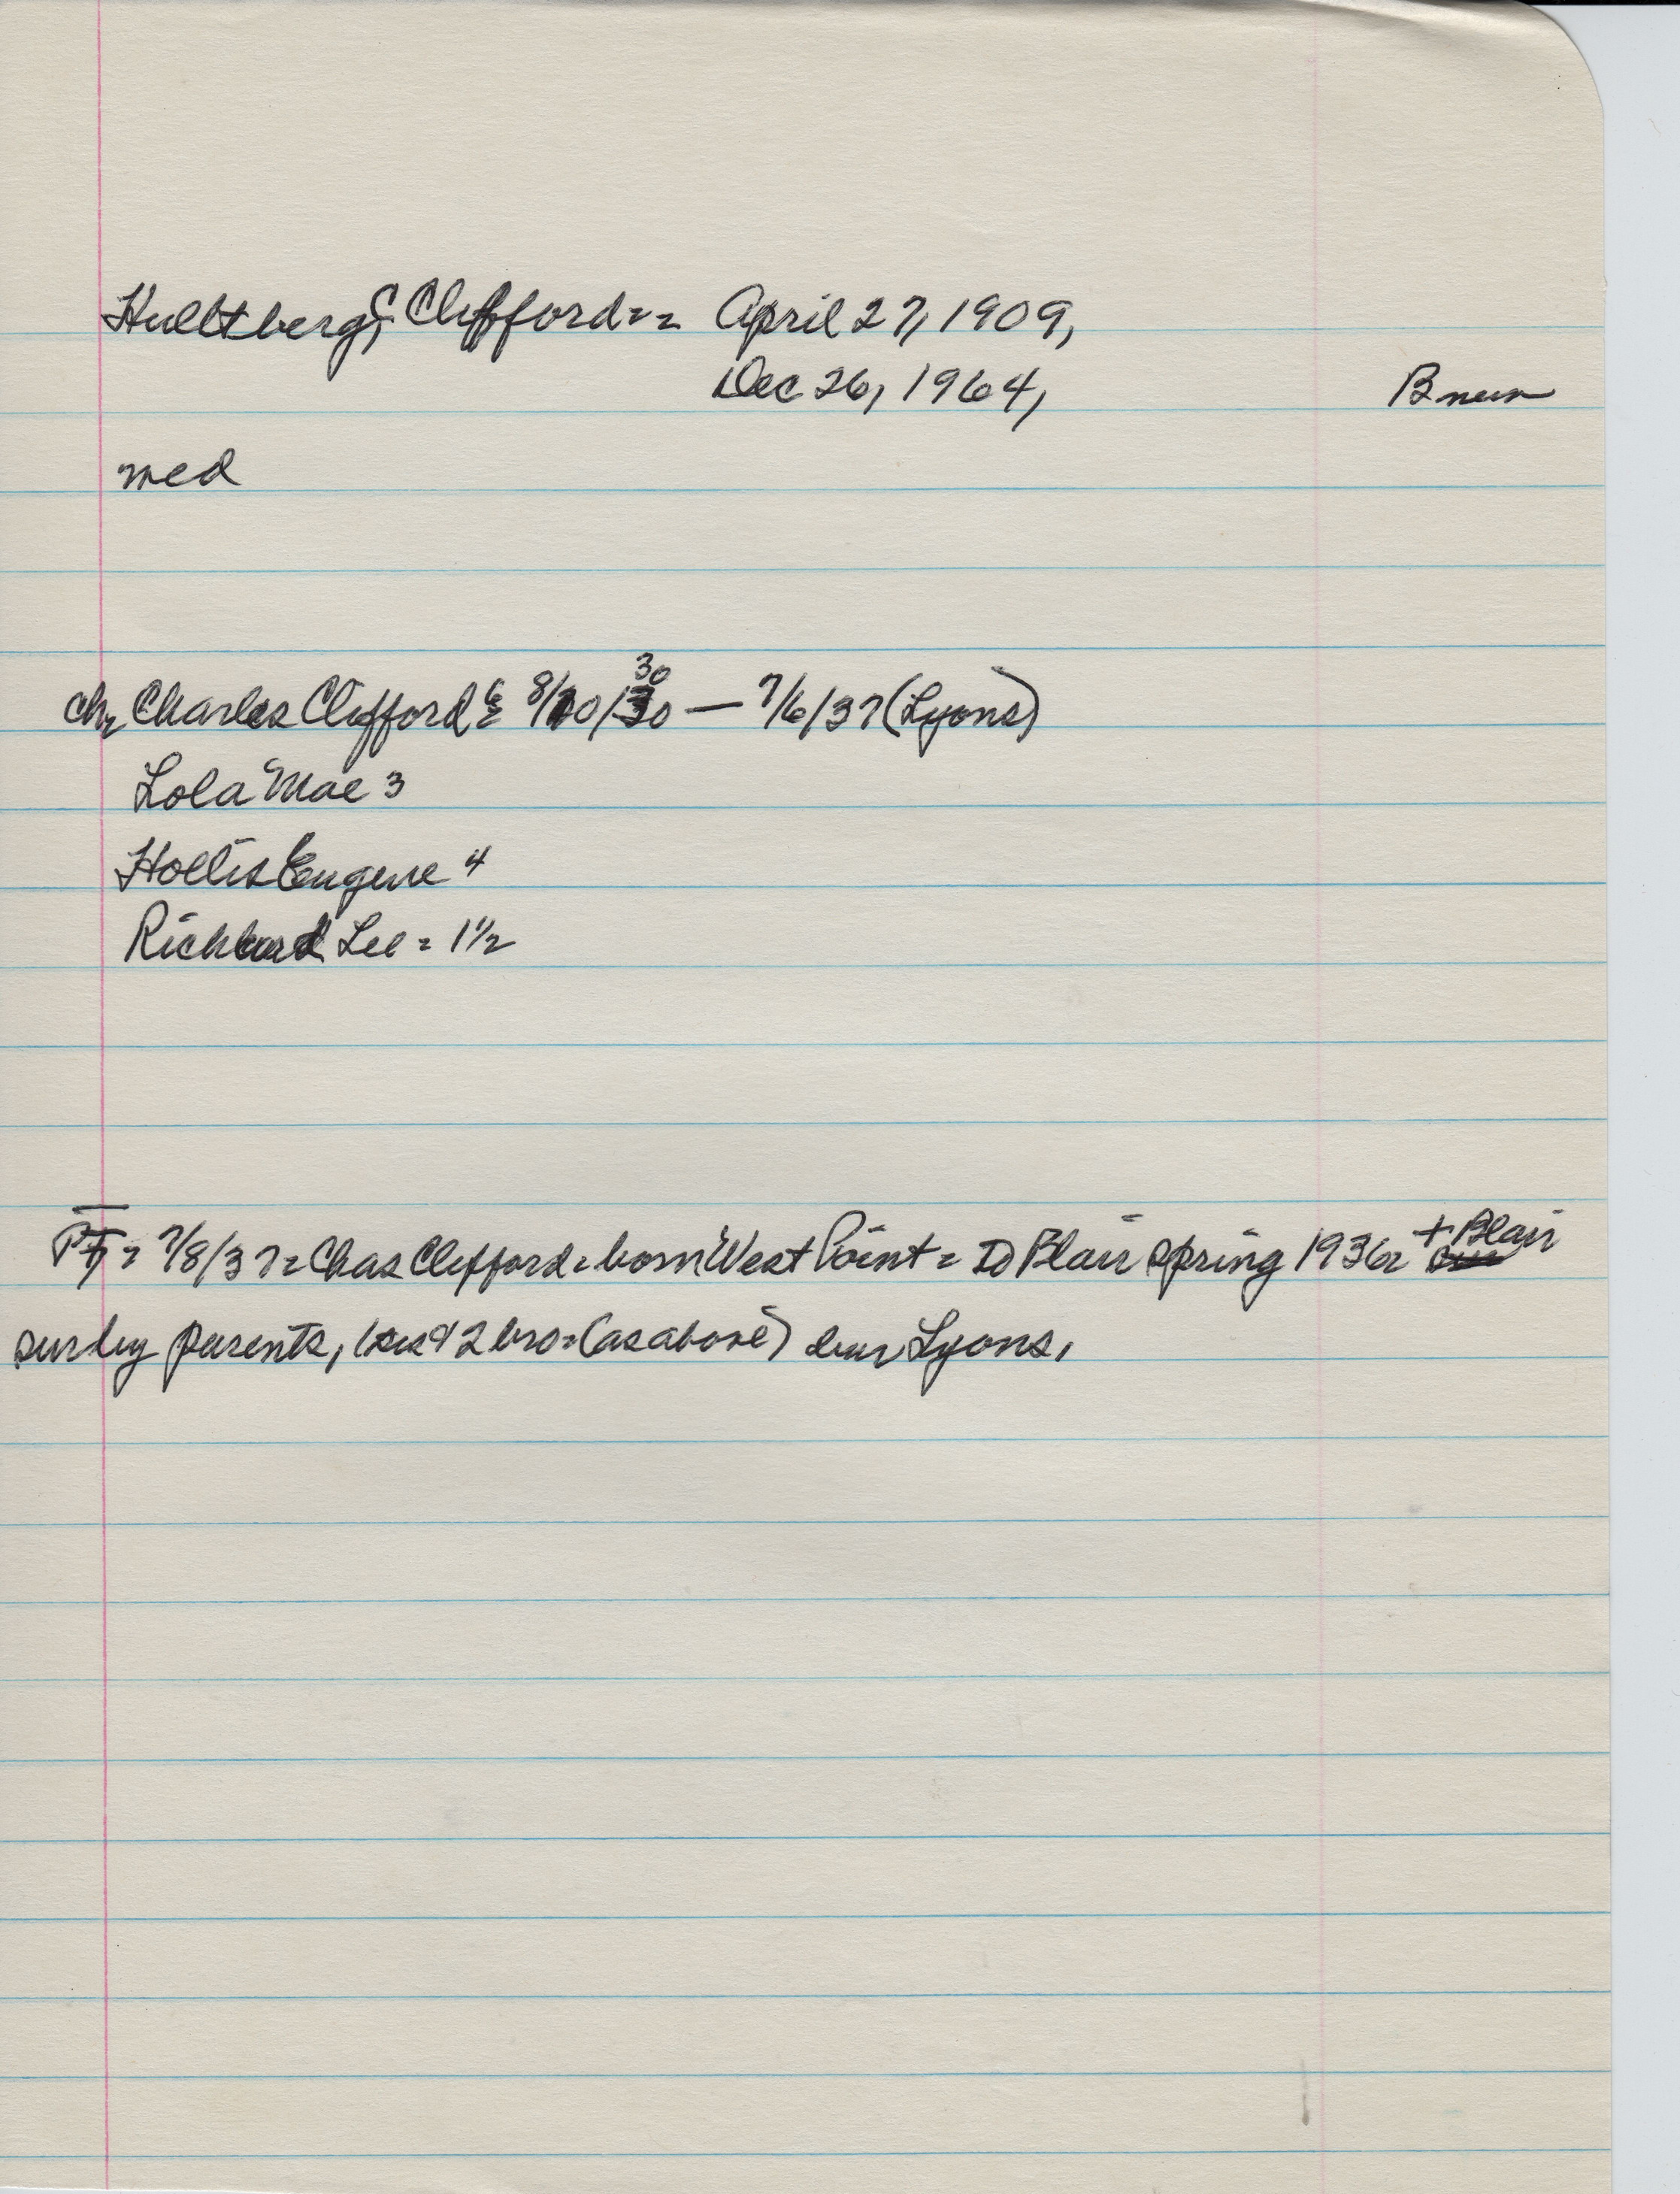 Hultberg, C Clifford == April 27, 1909,
Dec 26, 1964,
B mem
med
ch, Charles Clifford = 8/10/30 30 — 7/6/37 (Lyons)
Lola Mae 3
Hollis Eugene 4
Richard Lee = 1½
PT, = 7/8/37 = Chas Clifford = born West Point = to Blair Spring 1936 = + Blair
sur by parents, 1 sis & 2 bro = (as above) bur Lyons,